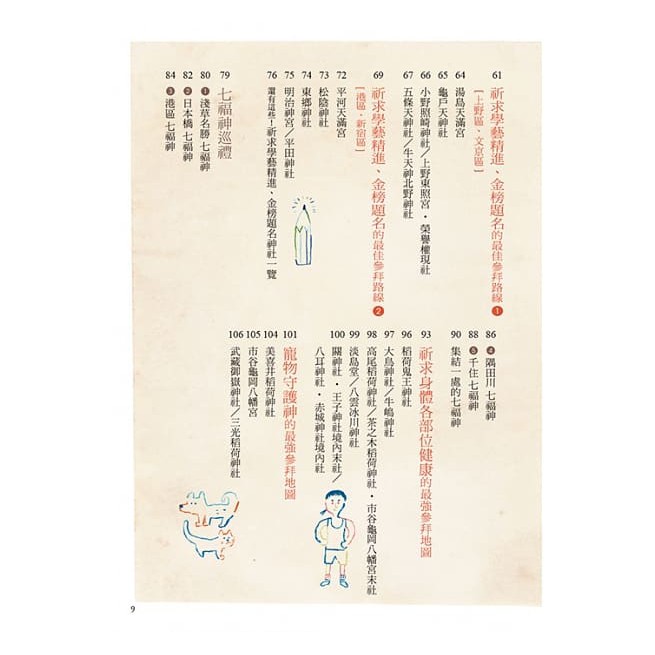 61 祈求學藝精進、金榜題名的最佳參拜路線❶
【上野區・文京區】
64 湯島天滿宮
65 龜戶天神社
66 小野照崎神社／上野東照宮・榮譽權現社
67 五條天神社／牛天神北野神社
69 祈求學藝精進、金榜題名的最佳參拜路線❷
【港區・新宿區】
72 平河天滿宮
73 松陰神社
74 東鄉神社
75 明治神宮／平田神社
76 還有這些！祈求學藝精進、金榜題名神社一覽
79 七福神巡禮
80 ❶ 淺草名勝七福神
82 ❷ 日本橋七福神
84 ❸ 港區七福神
86 ❹ 隅田川七福神
88 ❺ 千住七福神
90 集結一處的七福神
93 祈求身體各部位健康的最強參拜地圖
96 稻荷鬼王神社
97 大鳥神社／牛嶋神社
98 高尾稻荷神社／茶之木稻荷神社・市谷龜岡八幡宮末社
99 淡島堂／八雲冰川神社
100 關神社・王子神社境內末社／
八耳神社・赤城神社境內社
101 寵物守護神的最強參拜地圖
104 美喜井稻荷神社
105 市谷龜岡八幡宮
106 武藏御嶽神社／三光稻荷神社
9